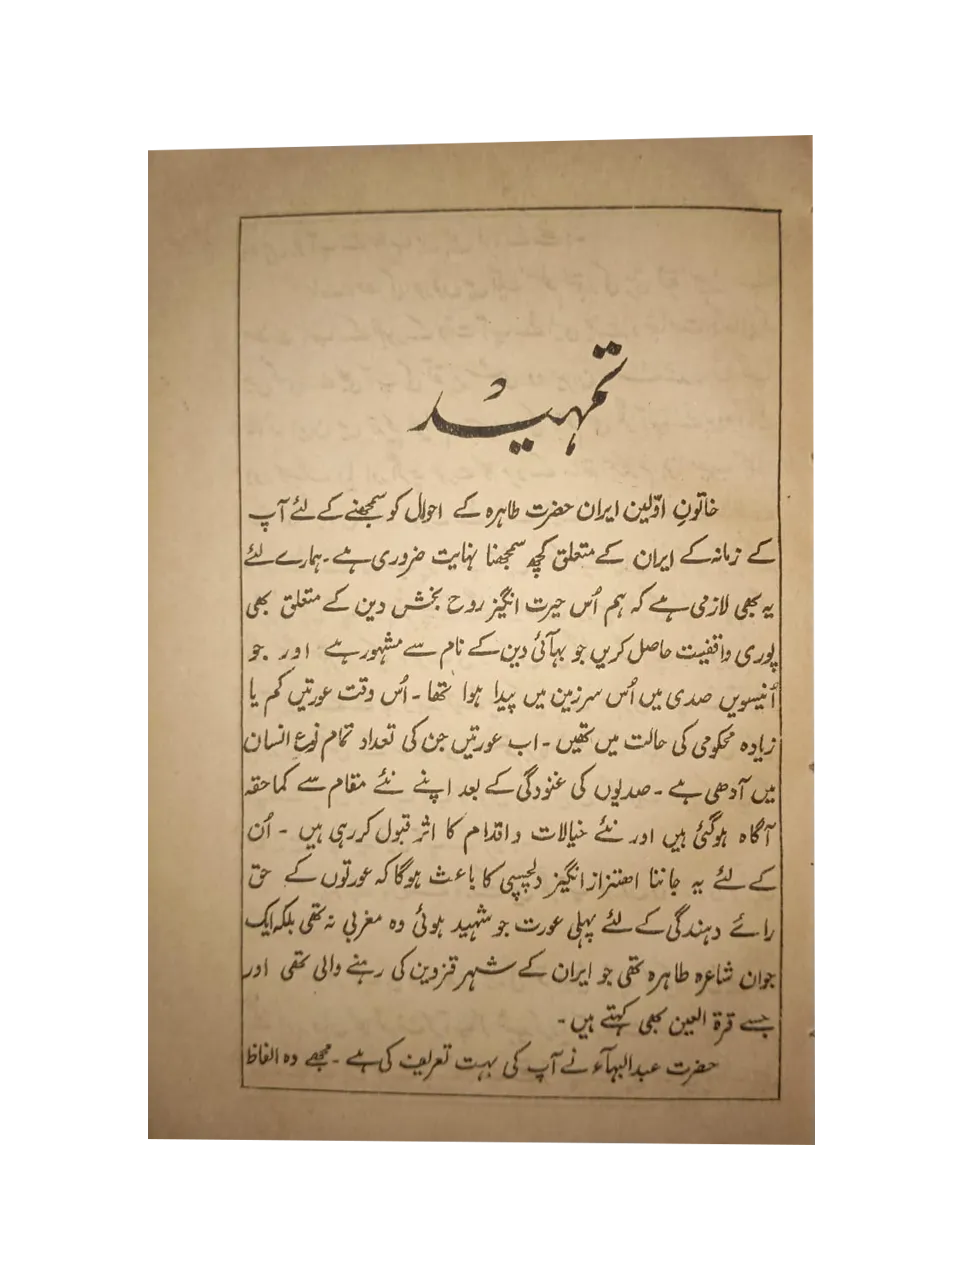 تمہید
خاتونِ اوّلین ایران حضرت طاہرہ کے احوال کو سمجھنے کے لئے آپ
کے زمانہ کے ایران کے متعلق کچھ سمجھنا نہایت ضروری ہے۔ ہمارے لئے
یہ بھی لازمی ہے کہ ہم اُس حیرت انگیز روح بخش دین کے متعلق بھی
پوری واقفیت حاصل کریں جو بہائی دین کے نام سے مشہور ہے اور جو
اُنیسویں صدی میں اُس سرزمین میں پیدا ہوا تھا۔ اُس وقت عورتیں کم یا
زیادہ محکومی کی حالت میں تھیں۔ اب عورتیں جن کی تعداد تمام نوعِ انسان
میں آدھی ہے۔ صدیوں کی غنودگی کے بعد اپنے نئے مقام سے کماحقہ
آگاہ ہوگئی ہیں اور نئے خیالات و اقدام کا اثر قبول کر رہی ہیں۔ اُن
کے لئے یہ جاننا اھتزاز انگیز دلچسپی کا باعث ہوگا کہ عورتوں کے حق
رائے دہندگی کے لئے پہلی عورت جو شہید ہوئی وہ مغربی نہ تھی بلکہ ایک
جوان شاعرہ طاہرہ تھی جو ایران کے شہر قزوین کی رہنے والی تھی اور
جسے قرۃ العین بھی کہتے ہیں۔
حضرت عبدالبہآء نے آپ کی بہت تعریف کی ہے۔ مجھے وہ الفاظ